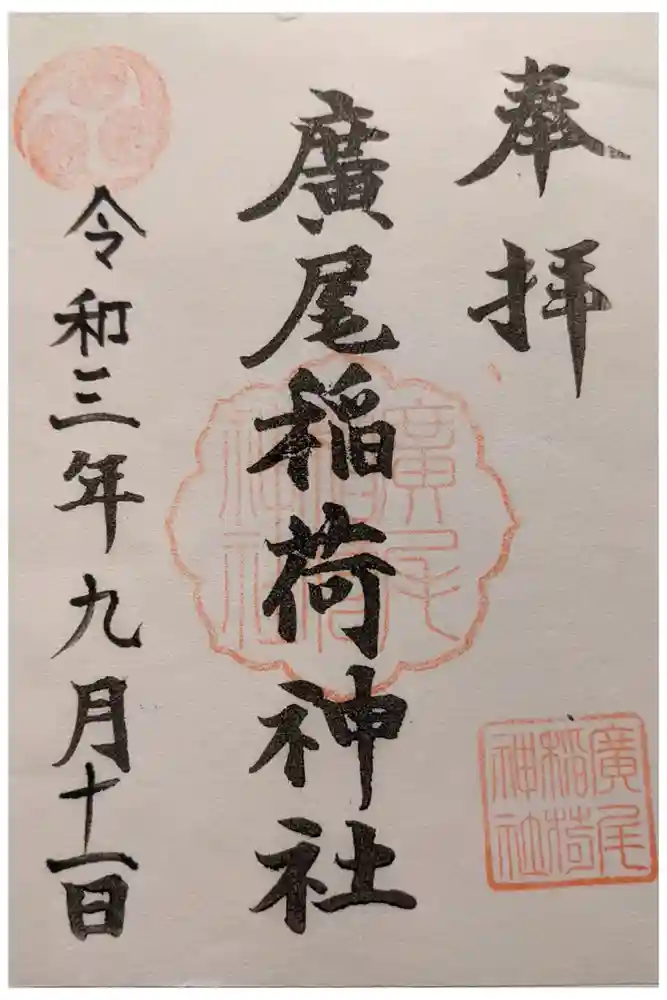 奉拝
廣尾稲荷神社
令和三年九月十一日
廣尾稲荷神社
廣尾稲荷神社